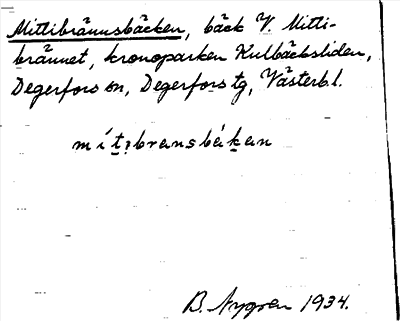 Mittibrännsbäcken, bäck V. Mitti-
brännet, kronoparken Kulbäcksliden,
Degerfors sn, Degerfors tg, Västerb.l.
B. Nygren 1934.